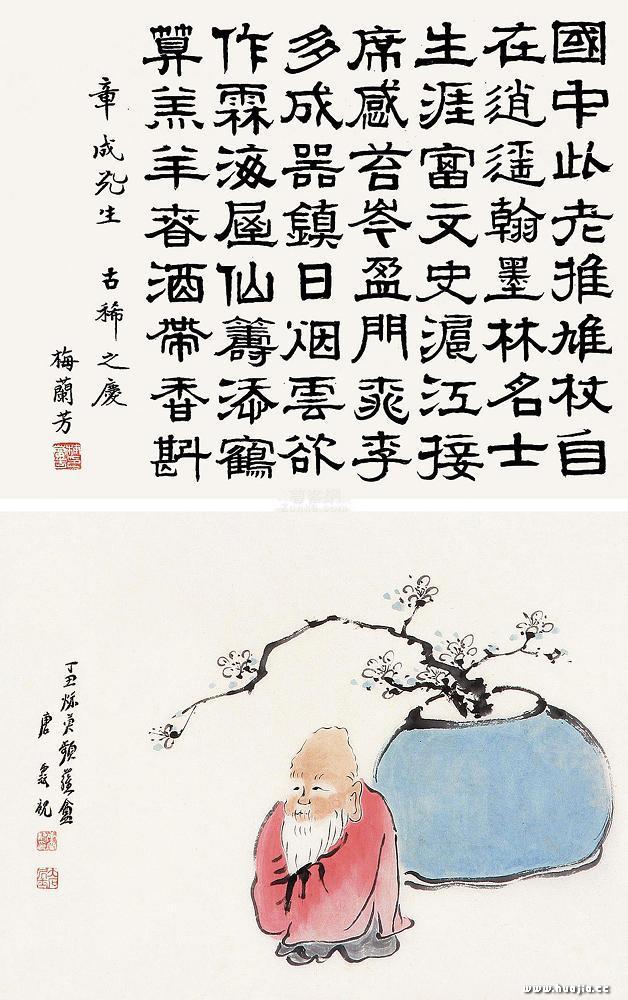 國中此老推鳩杖自
在逍遥翰墨林名士
生涯富文史滬江接
席感苔岑盈門桃李
多成器鎮日烟雲欲
作霖海屋仙籌添鶴
算羔羊春酒帶香斟
章成先生 古稀之慶
梅蘭芳
丁丑秋
唐 祝
www.huajia.cc